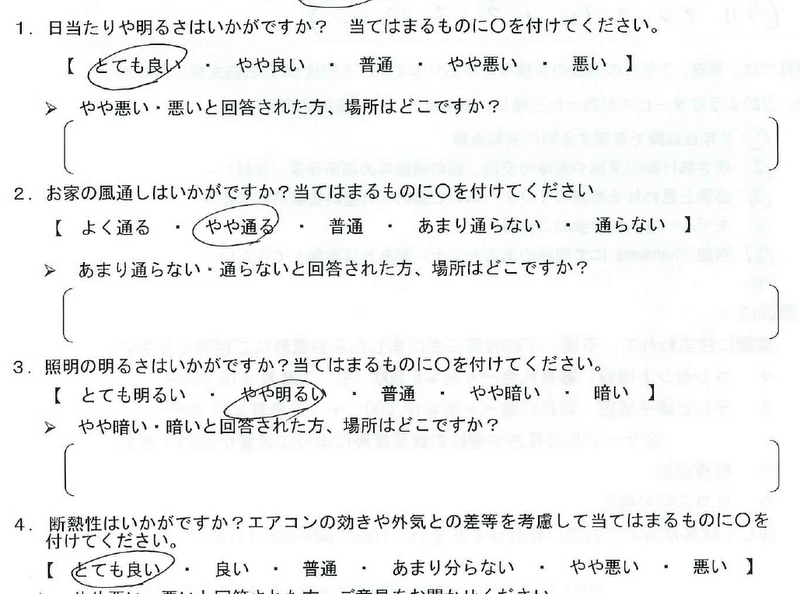 1. 日当たりや明るさはいかがですか? 当てはまるものに〇を付けてください。
【 とても良い ・ やや良い ・ 普通 ・ やや悪い ・ 悪い 】
➢ やや悪い・悪いと回答された方、場所はどこですか?
2. お家の風通しはいかがですか?当てはまるものに〇を付けてください
【 よく通る ・ やや通る ・ 普通 ・ あまり通らない ・ 通らない 】
➢ あまり通らない・通らないと回答された方、場所はどこですか?
3. 照明の明るさはいかがですか?当てはまるものに〇を付けてください。
【 とても明るい ・ やや明るい ・ 普通 ・ やや暗い ・ 暗い 】
➢ やや暗い・暗いと回答された方、場所はどこですか?
4. 断熱性はいかがですか?エアコンの効きや外気との差等を考慮して当てはまるものに〇を
付けてください。
【 とても良い ・ 良い ・ 普通 ・ あまり分らない ・ やや悪い ・ 悪い 】